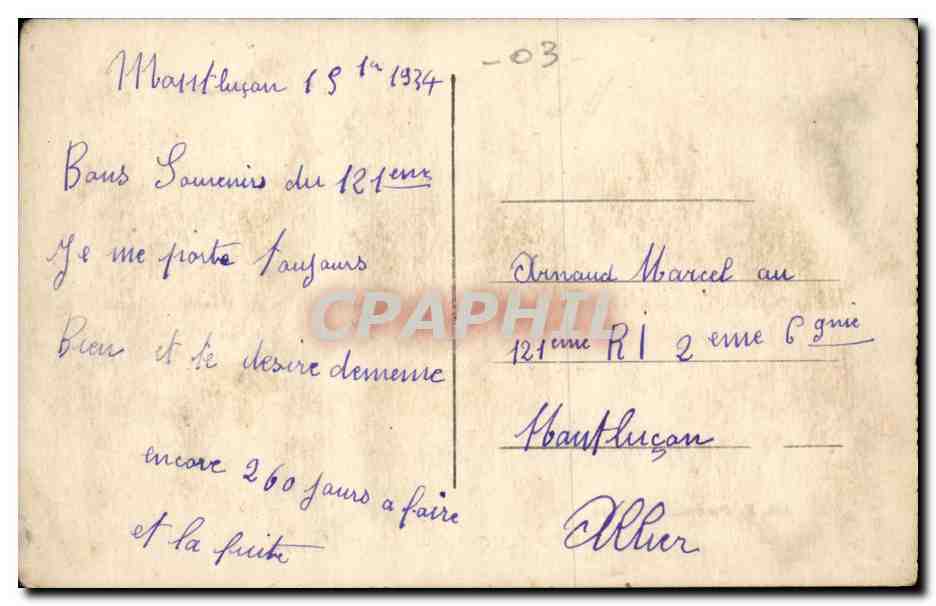 Montluçon 15 1er 1934
Bons Souvenirs du 121eme
Je me porte toujours
Bien et te desire dememe
encore 260 jours a faire
et la fuite
-03
Arnaud Marcel au
121eme RI 2eme Cgnie
Montluçon
Allier
CPAPHIL